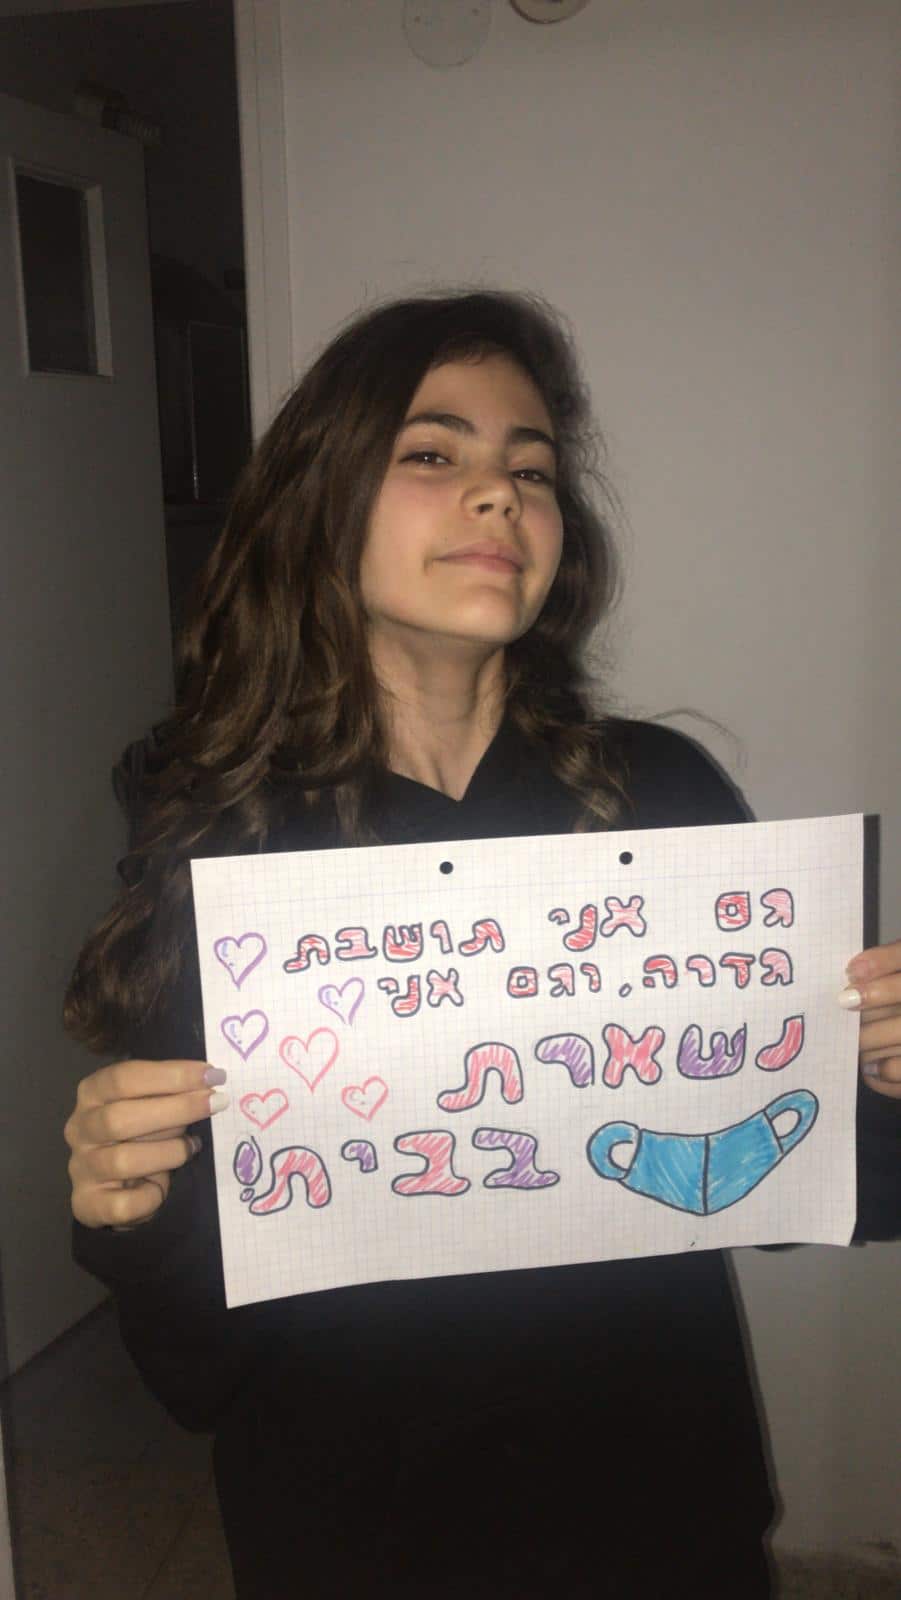 גם אני תושבת
גדרה, וגם אני
נשארת
בבית!